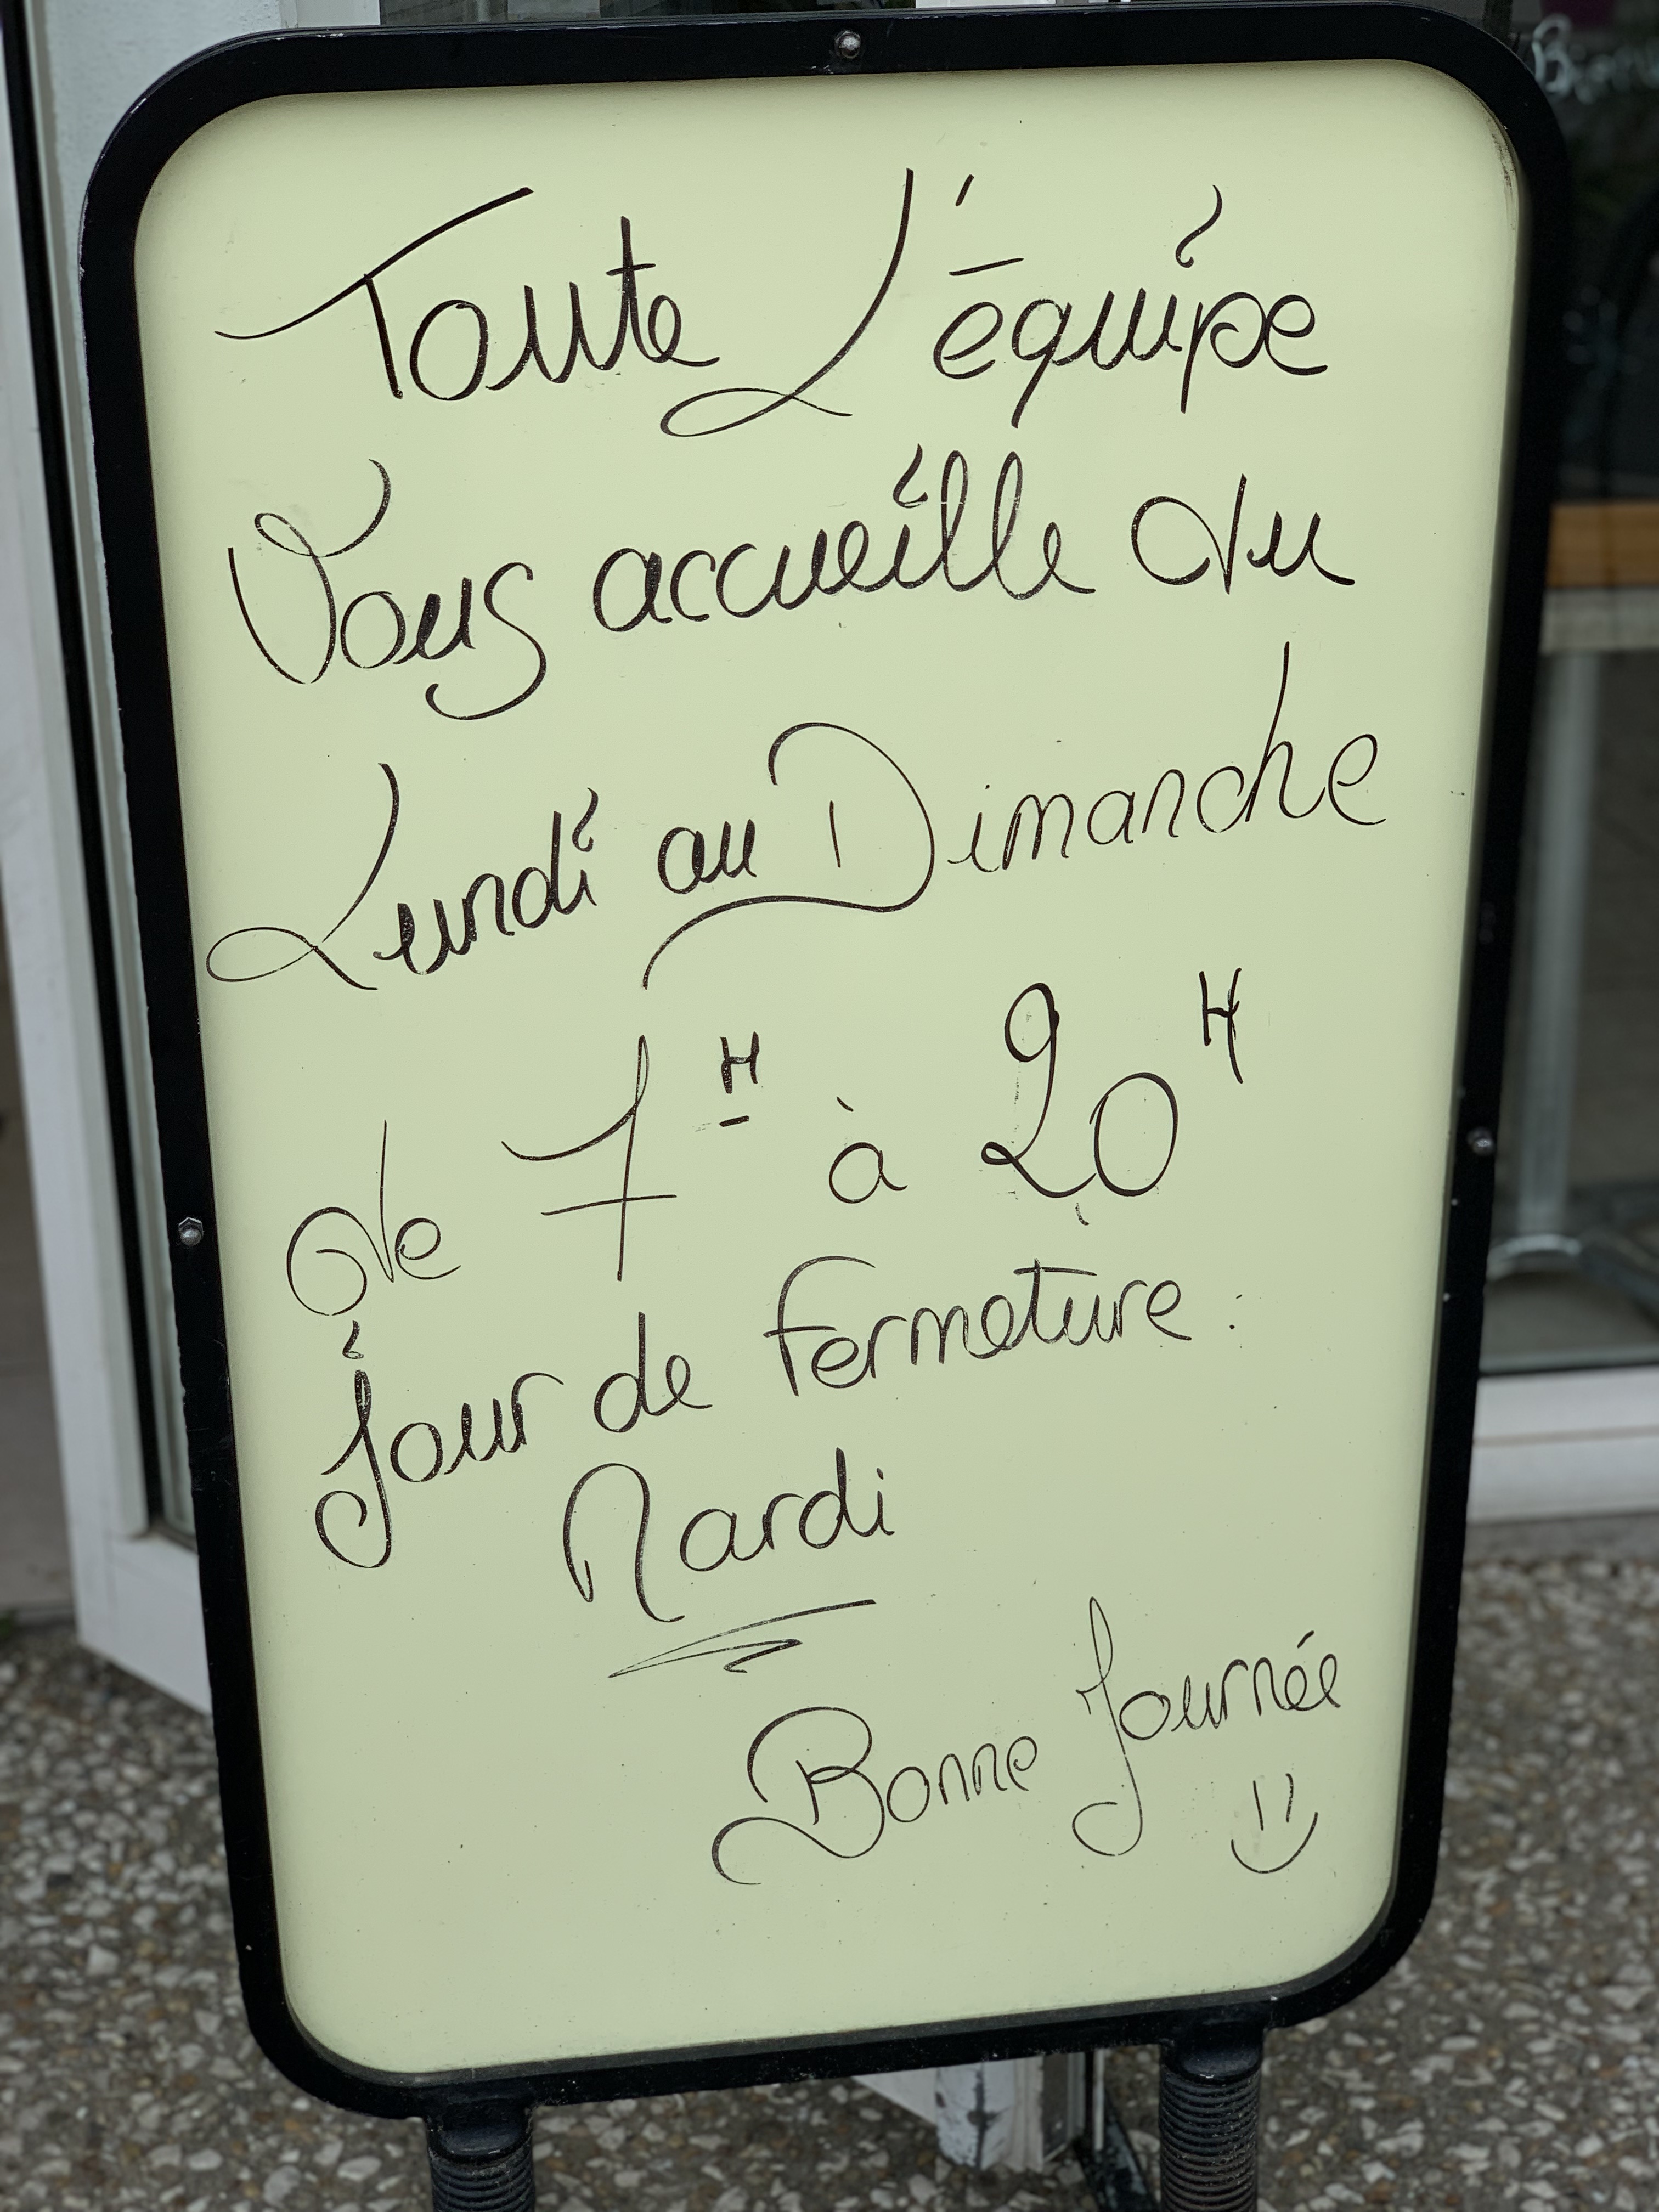 Toute L'équipe
Vous accueille du
Lundi au Dimanche
de 7H à 20H
Jour de fermeture :
Mardi
Bonne Journée